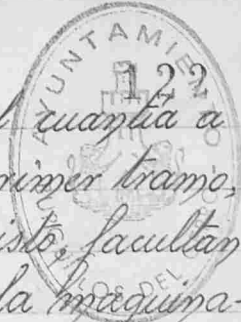 122
AYUNTAMIENTO
l cuantía a
rimer tramo,
isto, facultan
la maquina-
LOS DEL